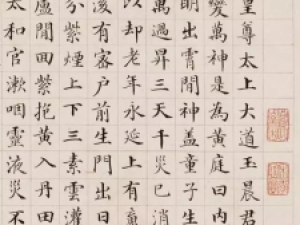 皇尊太上大道玉晨君
變萬神是為黃庭曰内
明出霄間神盖童子生
萬過昇三天千災已消
以却老年永延上有
後有密户前生門出日
分紫煙上下三素雲灌
廬間迴紫抱黃入丹田
太和官漱咽靈液災不